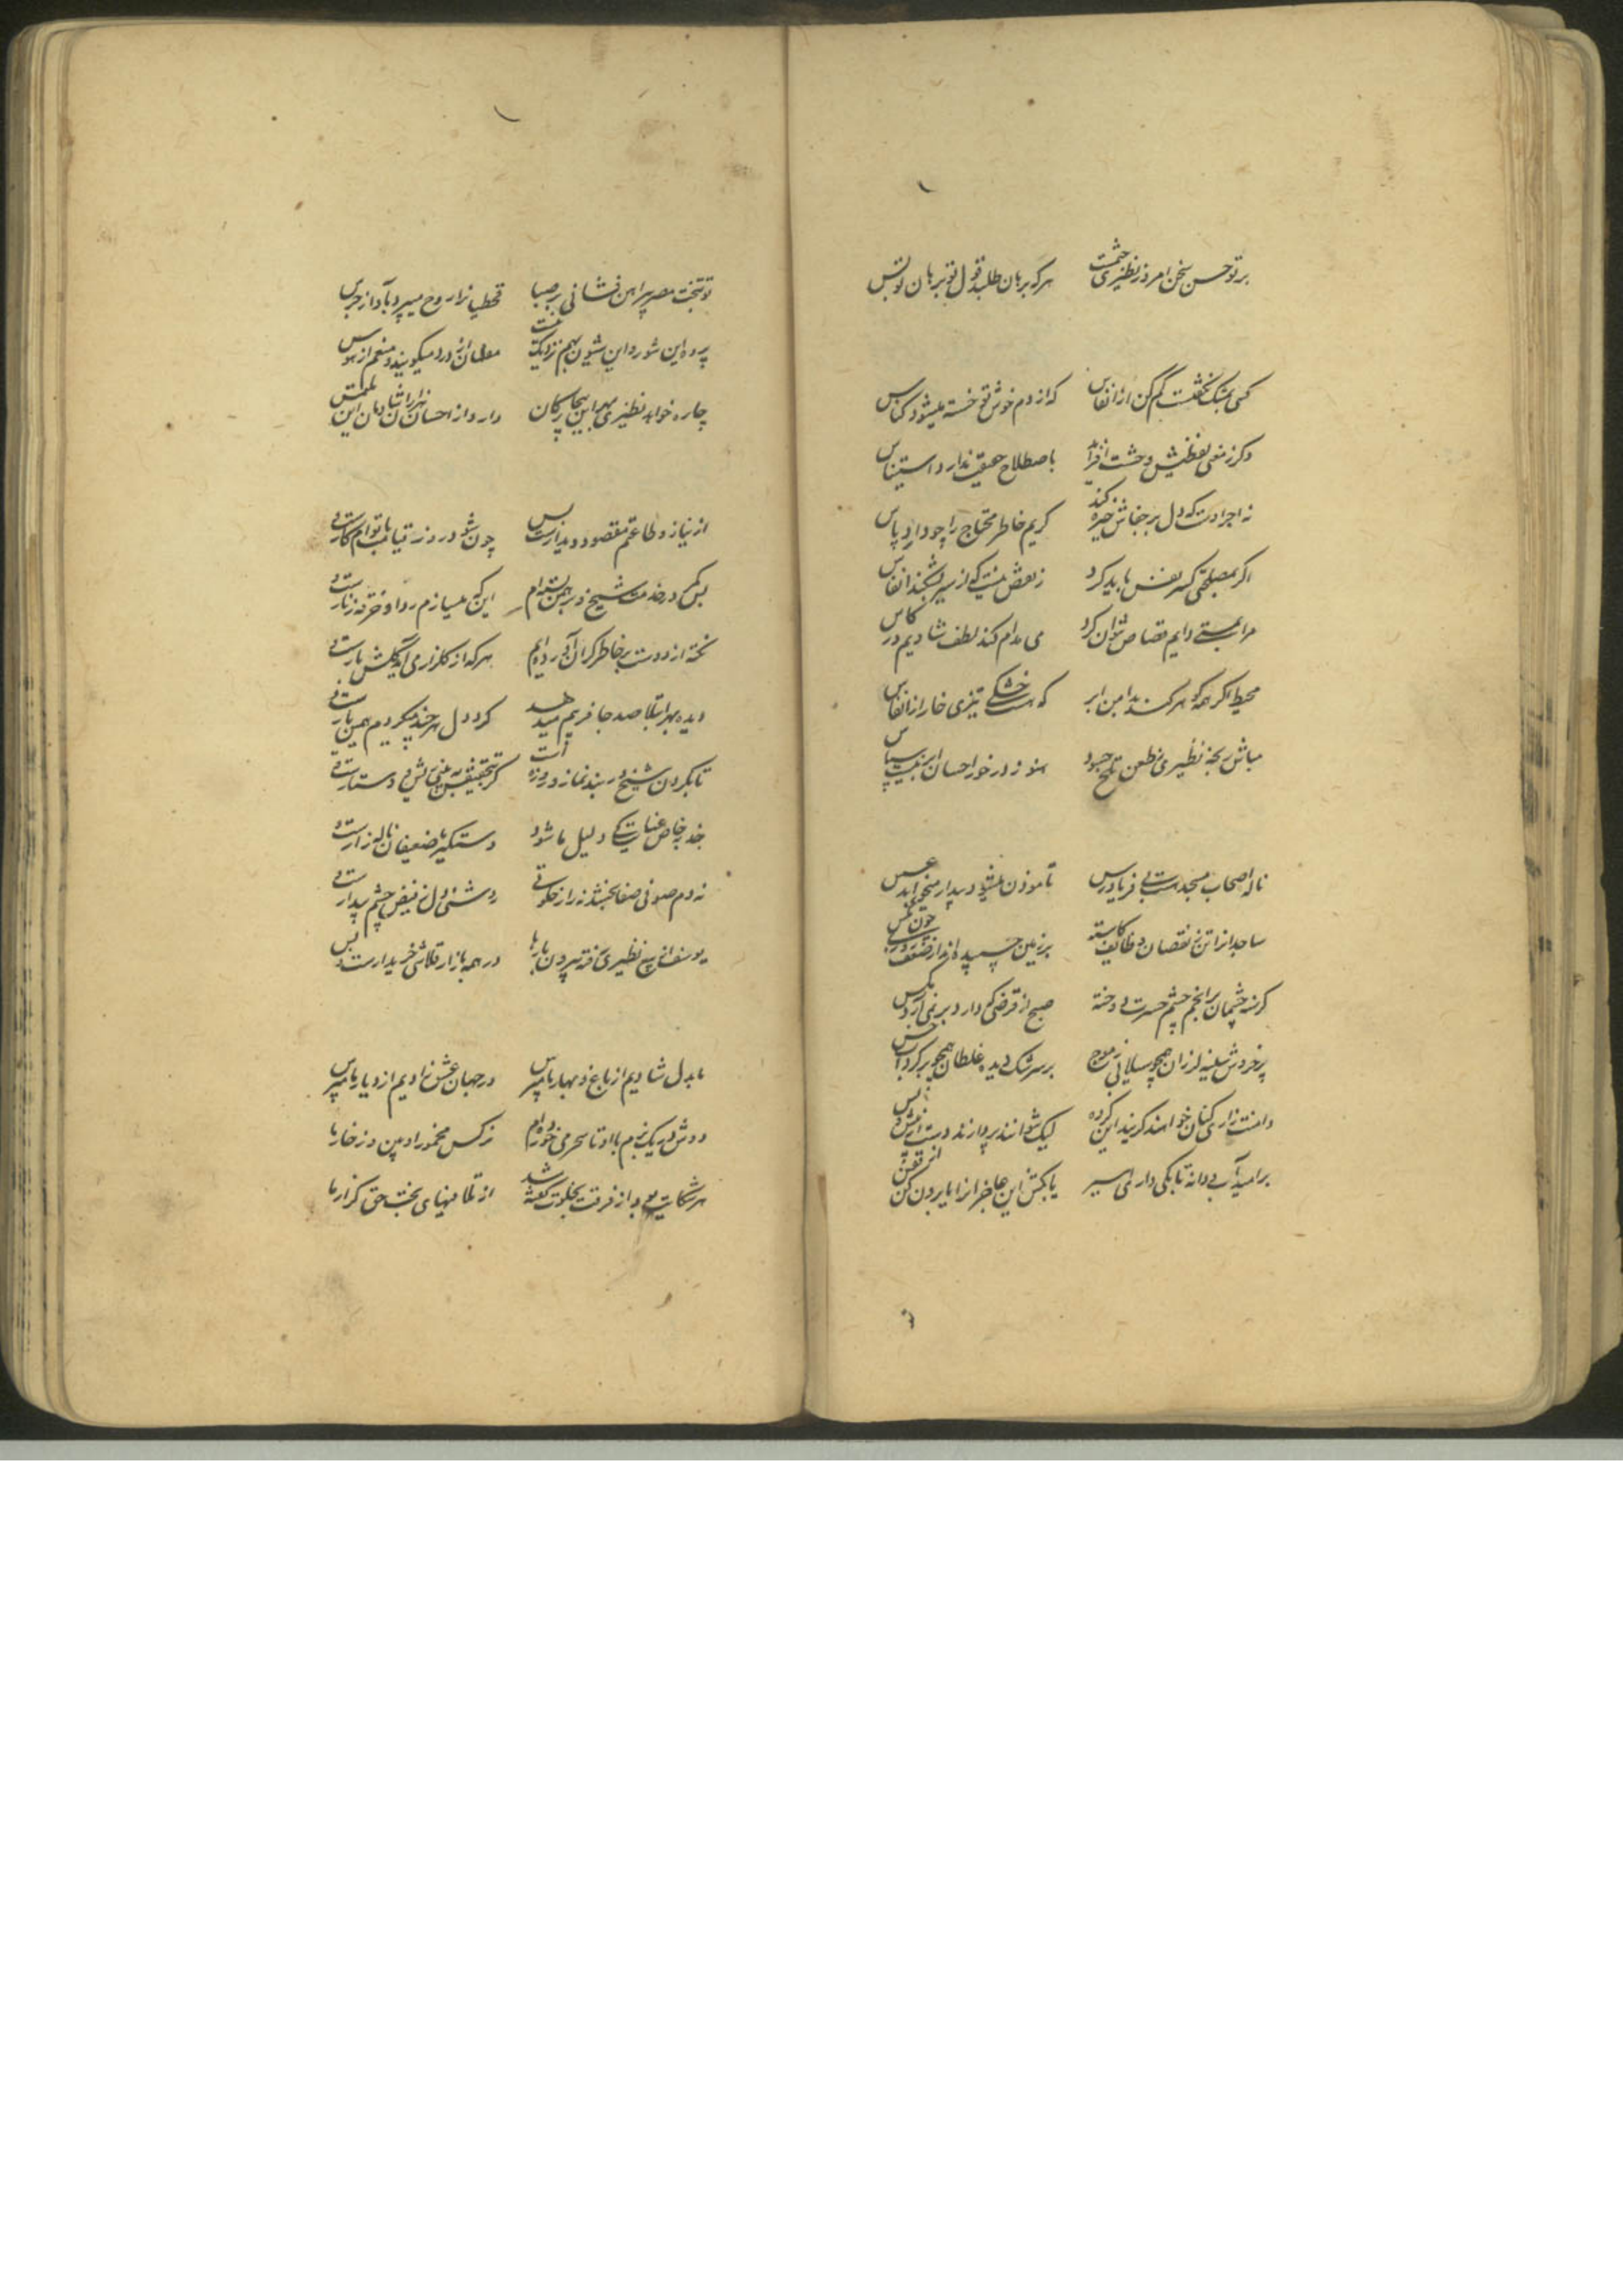 بر تو حسن سخن امروز نظیری ختمست هر که برهان طلبد قول تو برهان تو بس
کسی بمشک نگفتست کم کن از انفاس که از دم خوش تو خسته میشود کناس
وگر ز معنی لفظیش وحشت افزاید باصطلاح حقیقی ندارد استیناس
نه اجرا دست که دل بر جفاش خیره کند کریم خاطر محتاج را چو دارد پاس
اگر بمصلحتی کسر نفس باید کرد ز بعض نیست که از سیر بشکند انفاس
مرا بمستی دایم قصاص نتوان کرد می مدام کند لطف شادیم در کاس
محیط اگر همه گوهر کند بدامن ابر که هست خشکی تیزی خار از انفاس
مباش رنجه نظیری ز طعن تلخ حسود هنوز در خور احسان این نیست سپاس
ناله اصحاب مسجد هست بی فریادرس تا موذن میشود بیدار میخوابد عسس
ساجدان را تن ز نقصان وظایف کاسته بر زمین چسپیده اند از ضعف چون مگس
گرسنه چشمان بر انجم چشم حسرت دوخته صبح از قرضی که دارد بر نمی آرد نفس
پر خروش سینه لرزان همچو سیلابی ز موج بر سرشک دیده غلطان همچو بر گرداب خس
دامنت زاری کنان خواهند گریند این گروه لیک نتوانند بردارند دست از پیش و پس
بر امید آب و دانه تا بکی داری اسیر یا بکش این عاجزان را یا برون کن از قفس
تو بتخت مصر پیراهن فشانی بر صبا قحطیان را روح میپرد بآواز جرس
پرده این شور و این شیون بهم نزدیک نیست مفلسان از درد میگویند و منعم از هوس
چاره خواهد نظیری بهر این بیچارگان دارد از احسان شادمان این ملتمس
از نیاز و طاعتم مقصود دیدارست و بس چون شود روز قیامت با توام کارست و بس
بس که در خدمت شیخ در برهمن بسته ام این که میسازم ردا و خرقه زنارست و بس
تحفه از دوست بر خاطر گران آورده ایم هر که از گلزار می آید گلش بارست و بس
دیده بهر ابتلا صد جا فریبم میدهد گرد دل هر چند میگردم همین یارست و بس
تا بگردن شیخ در بند نماز و روزه است گر بتحقیقش به بینی ریش و دستارست و بس
جذبه خاص عنایت کی دلیل ما شود دستگیر ما ضعیفان ناله زارست و بس
نه دم صوفی صفا بخشد نه راز خلوتی روشنی دل ز فیض چشم بیدارست و بس
یوسفان بیع نظیری رفته بیرون بارها در همه بازار قلاشی خریدارست و بس
ما بدل شادیم از باغ و بهار ما مپرس در جهان عشق زادیم از دیار ما مپرس
دوش در یک بزم با او تا سحر می خورده ام نرگس مخمور او بین وز خمار ما
هر شکایت بود از فرقت بخلوت گفته شد از تلافیهای بخت حق گزار ما